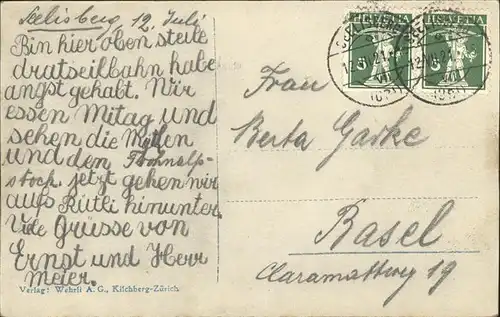 Seelisberg 12. Juli
Bin hier oben steile
dratseilbahn habe
angst gehabt. Wir
essen Mitag und
sehen die Myten
und den Fronalp-
stock. jetzt gehen wir
aufs Rütli hinunter.
Viele Grüsse von
Ernst und Herr
Meier.
Verlag: Wehrli A. G., Kilchberg-Zürich.
HELVETIA HELVETIA
Frau
Berta Gaske
Basel
Claramattweg 19